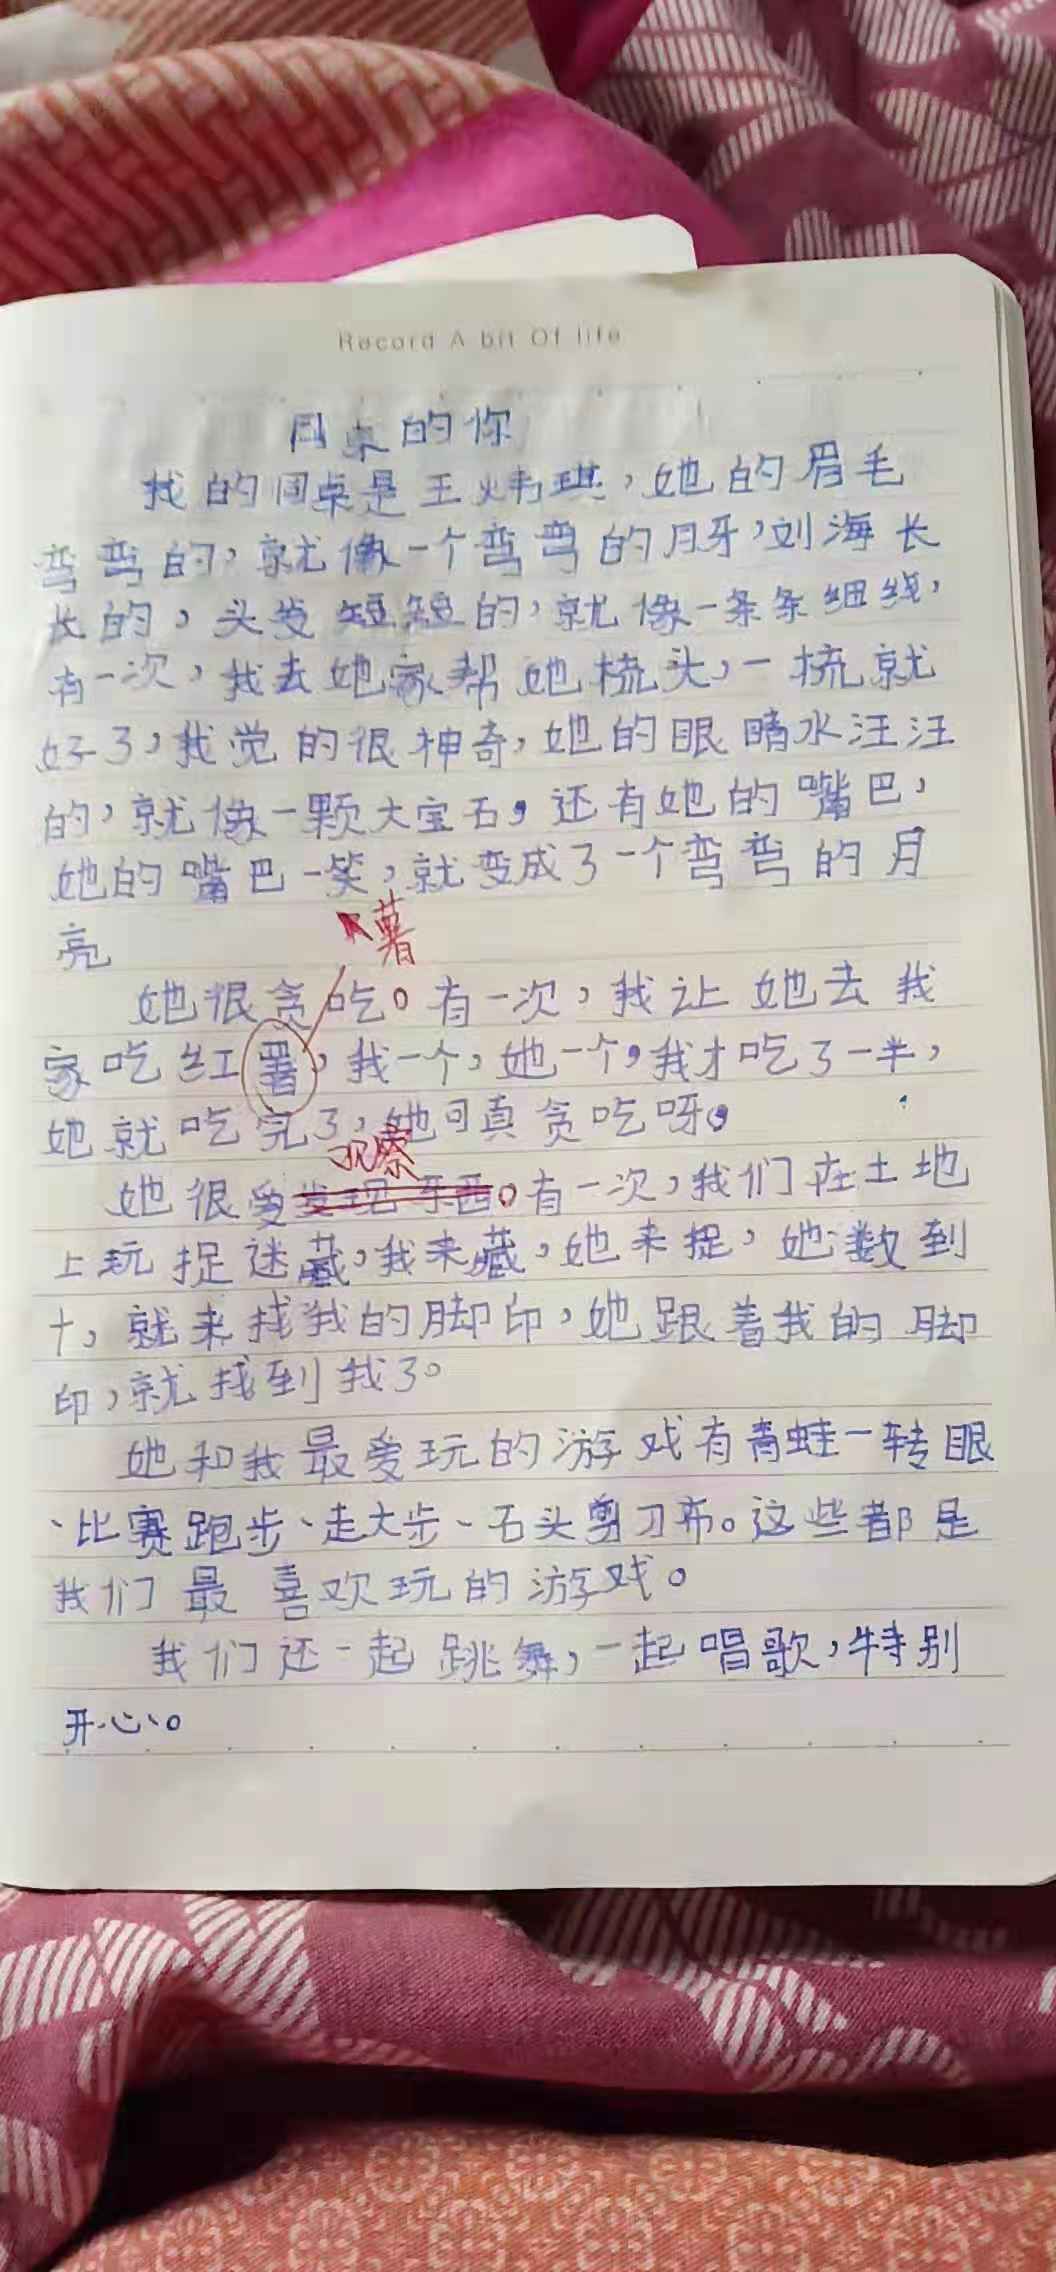 Record A bit Of life
同桌的你
我的同桌是王炜琪，她的眉毛
弯弯的，就像一个弯弯的月牙，刘海长
长的，头发短短的，就像一条条细线，
有一次，我去她家帮她梳头，一梳就
好了，我觉的很神奇，她的眼睛水汪汪
的，就像一颗大宝石，还有她的嘴巴，
她的嘴巴一笑，就变成了一个弯弯的月
亮
薯
她很贪吃。有一次，我让她去我
家吃红署，我一个，她一个，我才吃了一半，
她就吃完了，她可真贪吃呀。
观察
她很爱发现东西。有一次，我们在土地
上玩捉迷藏，我来藏，她来捉，她数到
十，就来找我的脚印，她跟着我的脚
印，就找到我了。
她和我最爱玩的游戏有青蛙一转眼
、比赛跑步、走大步、石头剪刀布。这些都是
我们最喜欢玩的游戏。
我们还一起跳舞，一起唱歌，特别
开心。